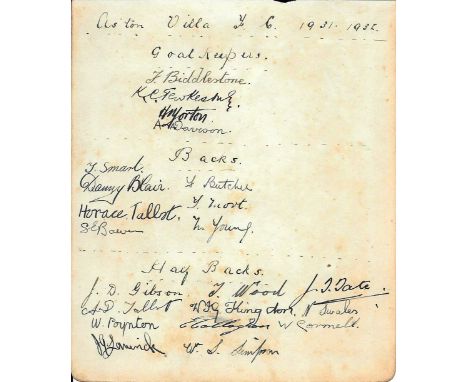 Aston Villa F C. 1931-1932.
Goal Keepers.
F. Biddlestone.
K. C. Tewkesbury
H Morton
A Davison.
Backs.
T. Smart.
Danny Blair. F Butcher
Horace Tallbot. F
S E Bowen N. Young.
Half Backs.
J. D. Gibson T. Wood J. T. Tate.
A. D. Talbot W. J. G. Kingdon, N Swales
W. Boynton Callaghan W Cormell.
W. S. Simpson